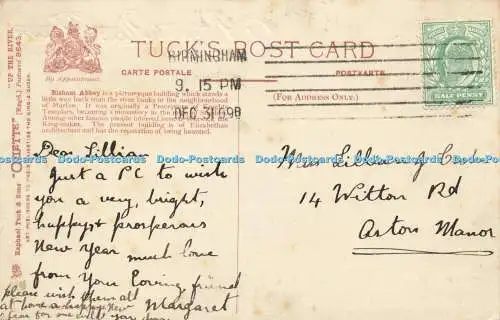 "UP THE RIVER."
"OILETTE" [Regd.] Postcard 8643.
Raphael Tuck & Sons
By Appointment.
TUCK'S POST CARD
CARTE POSTALE
POSTKARTE
(FOR ADDRESS ONLY.)
BIRMINGHAM
9. 15 PM
DEC 31
HALF PENNY
Bisham Abbey is a picturesque building which stands a
little way back from the river banks in the neighbourhood
of Marlow. It was originally a Preceptory of Knights
Templars, becoming a monastery in the
Among other famous people
King-maker. The present building is of Elizabethan
architecture and has the reputation of being haunted.
Dear Lillian
Just a PC to wish
you a very, bright,
happy & prosperous
New Year much love
from your loving friend
Margaret
please wish them all
at home a happy New
Year for me
Miss Lillian
14 Witton Rd
Aston Manor
Dodo-Postcards Dodo-Postcards Dodo-Postcards Dodo-Postcards